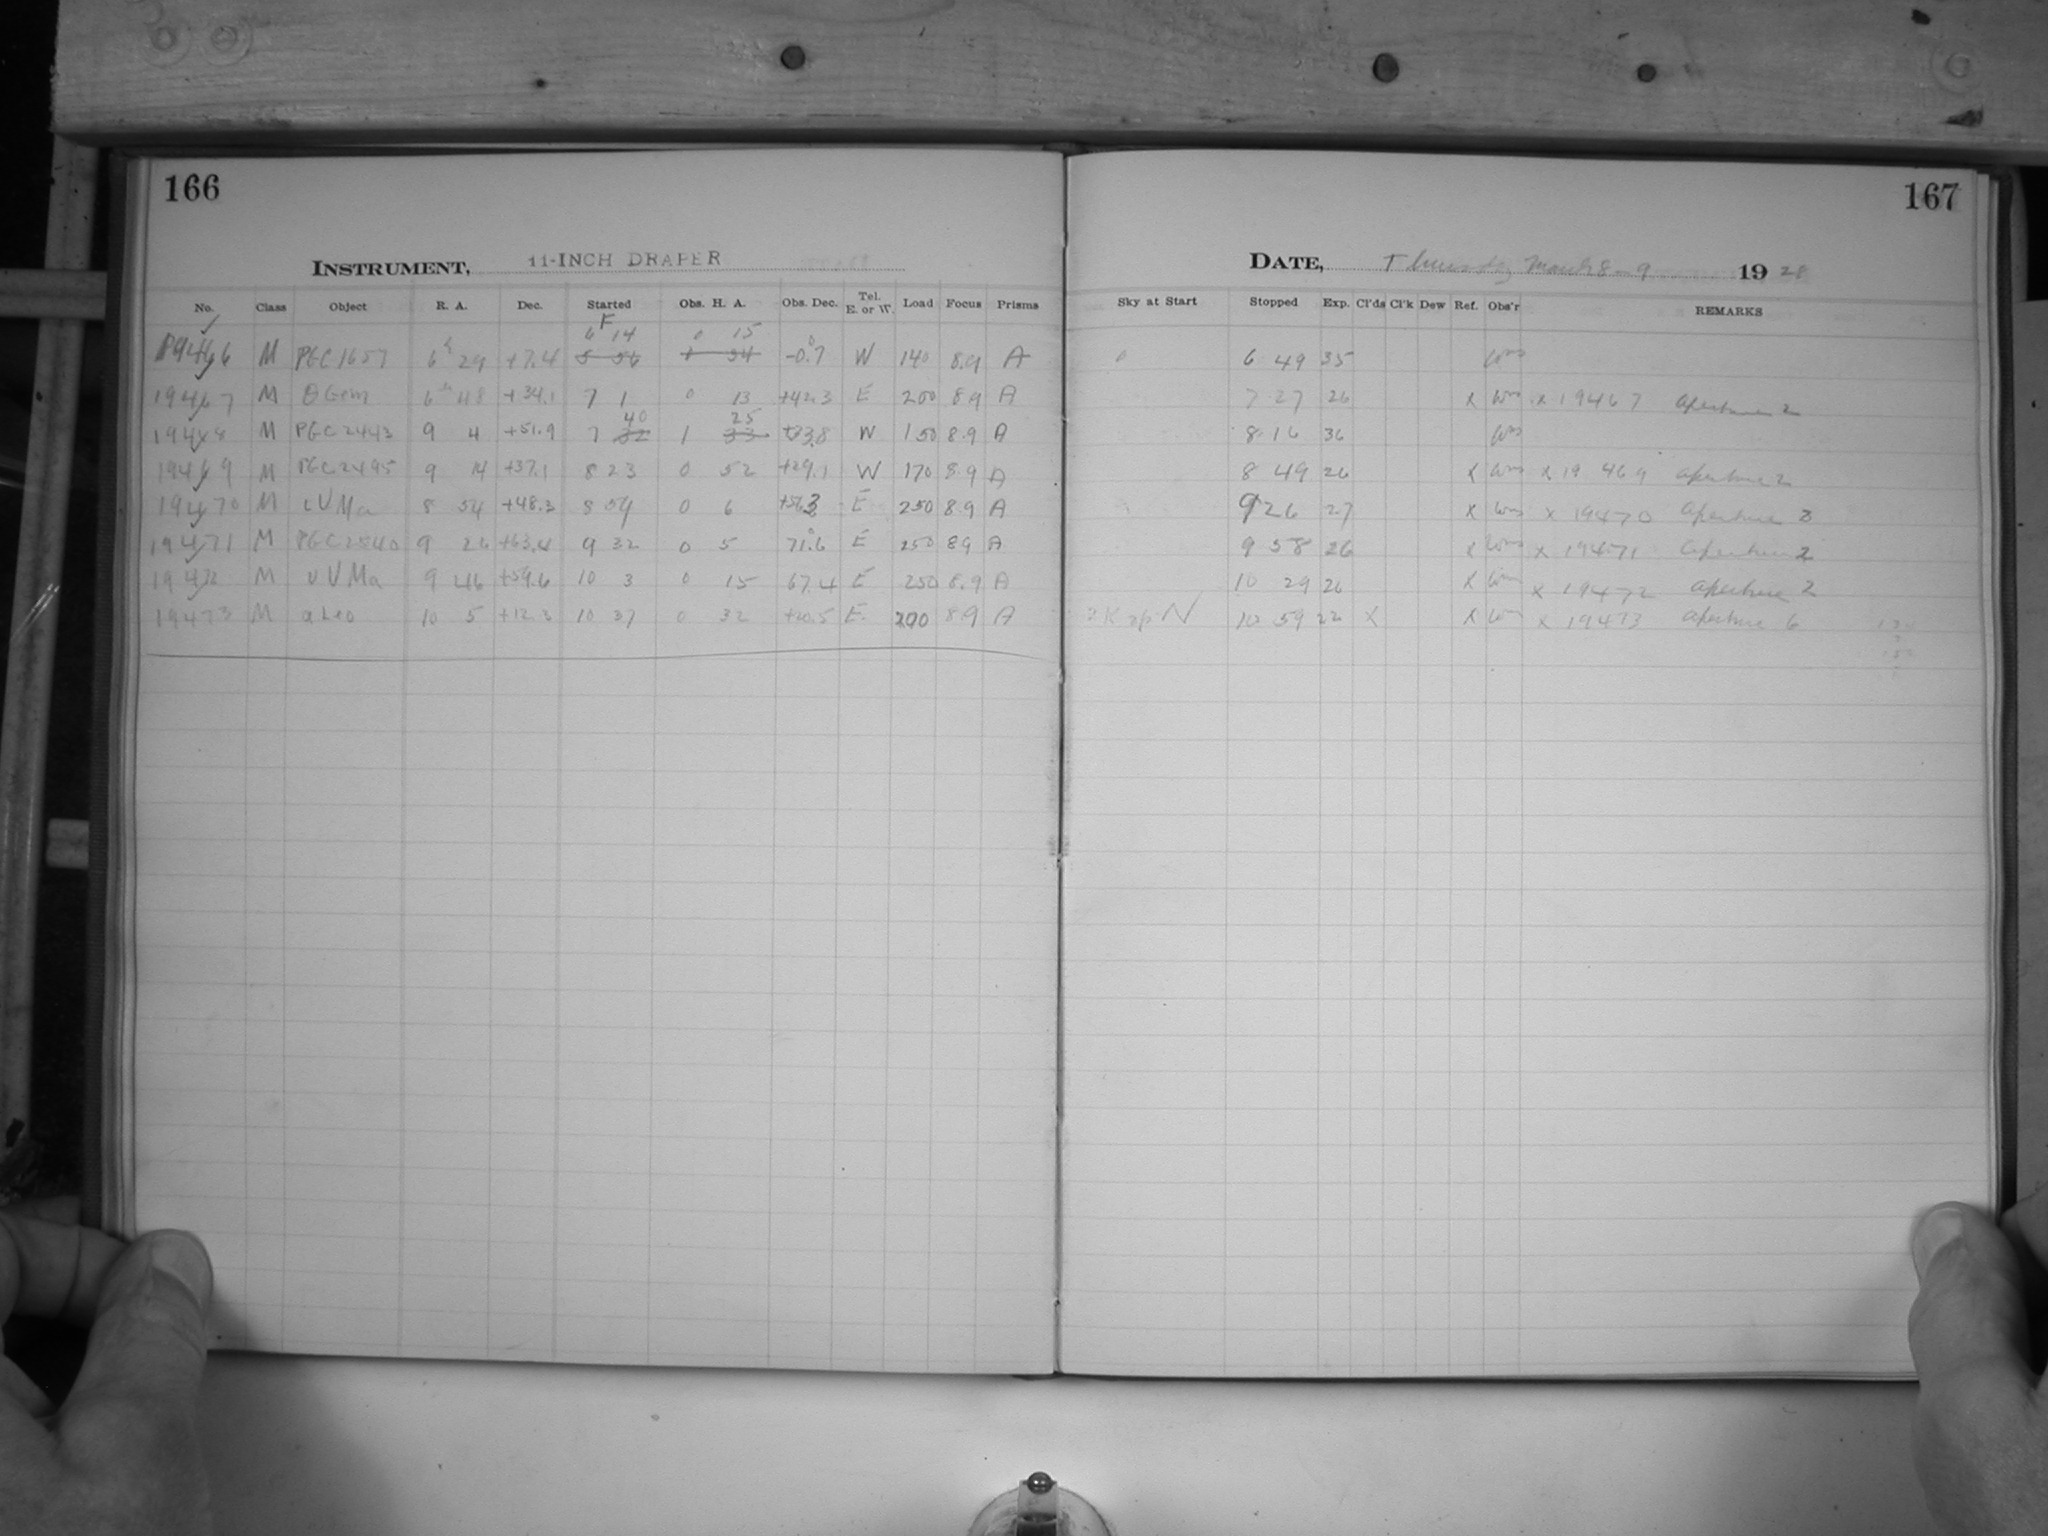 166
INSTRUMENT, 11-INCH DRAPER
No. Class Object R. A. Dec. Started Obs. H. A. Obs. Dec. Tel. E. or W. Load Focus Prisms
F
6 14 0 15
19466 M PGC 1657 6h 29 +7.4 5 56 1 34 -0.7 W 140 8.9 A
19467 M θ Gem 6h 48 +34.1 7 1 0 13 +42.3 E 200 8.9 A
40 25
19468 M PGC 2443 9 4 +51.9 7 32 1 33 +43.8 W 150 8.9 A
19469 M PGC 2495 9 14 +37.1 8 23 0 52 +29.1 W 170 8.9 A
19470 M ι UMa 8 54 +48.3 8 54 0 6 +56.3 E 250 8.9 A
19471 M PGC 2540 9 26 +63.4 9 32 0 5 71.6 E 250 89 A
19472 M υ UMa 9 46 +59.6 10 3 0 15 67.4 E 250 8.9 A
19473 M α Leo 10 5 +12.3 10 37 0 32 +20.5 E. 200 8.9 A
167
DATE, Thursday March 8-9 1928
Sky at Start Stopped Exp. Cl'ds Cl'k Dew Ref. Obs'r REMARKS
0 6 49 35
7 27 26 x x 19467 aperture 2
8 16 36
8 49 26 x x 19469 aperture 2
9 26 27 x x 19470 aperture 3
9 58 26 x x 19471 aperture 2
10 29 26 x x 19472 aperture 2
N 10 59 22 x x x 19473 aperture 6